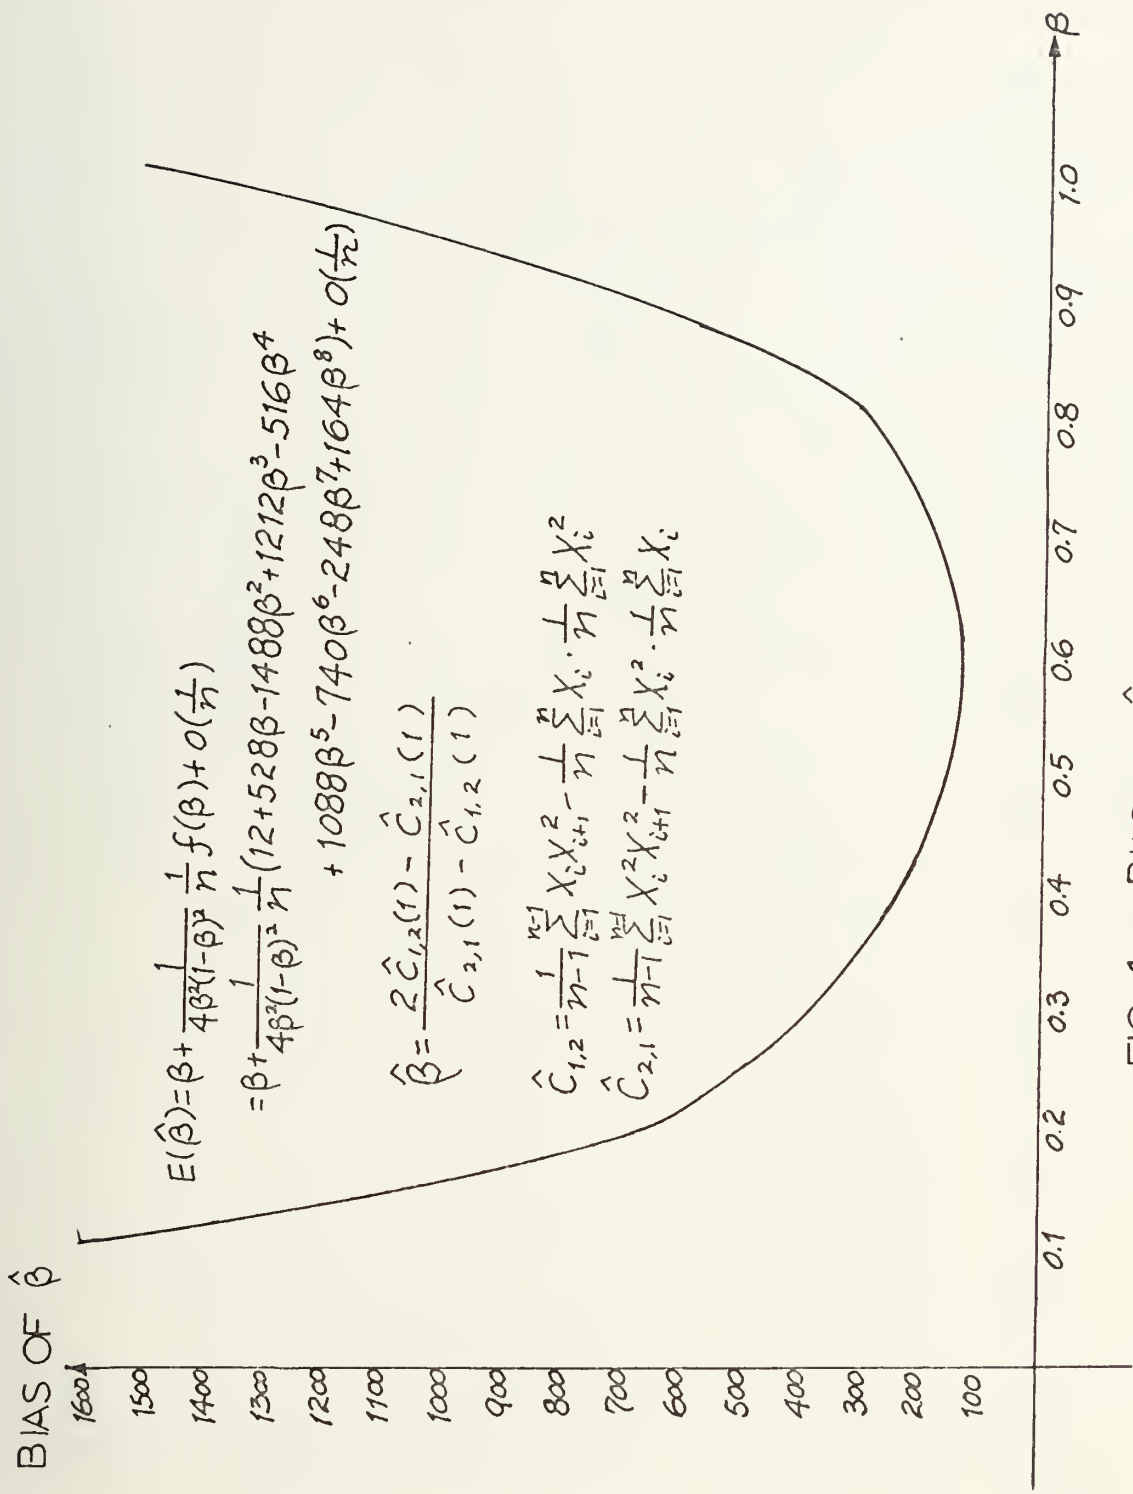 BIAS OF β̂
1600
1500
1400
1300
1200
1100
1000
900
800
700
600
500
400
300
200
100
E(β̂)=β+ 1/(4β²(1-β)²) 1/n f(β)+ O(1/n)
=β+ 1/(4β²(1-β)²) 1/n (12+528β-1488β²+1212β³-516β⁴
+1088β⁵-740β⁶-248β⁷+164β⁸)+ O(1/n)
β̂= (2Ĉ₁,₂(1) - Ĉ₂,₁(1))/(Ĉ₂,₁(1) - Ĉ₁,₂(1))
Ĉ₁,₂ = 1/(n-1) Σ_{i=1}^{n-1} XᵢX²ᵢ₊₁ - 1/n Σ_{i=1}^{n} Xᵢ · 1/n Σ_{i=1}^{n} Xᵢ²
Ĉ₂,₁ = 1/(n-1) Σ_{i=1}^{n-1} Xᵢ²X²ᵢ₊₁ - 1/n Σ_{i=1}^{n} Xᵢ² · 1/n Σ_{i=1}^{n} Xᵢ
0.1 0.2 0.3 0.4 0.5 0.6 0.7 0.8 0.9 1.0 β